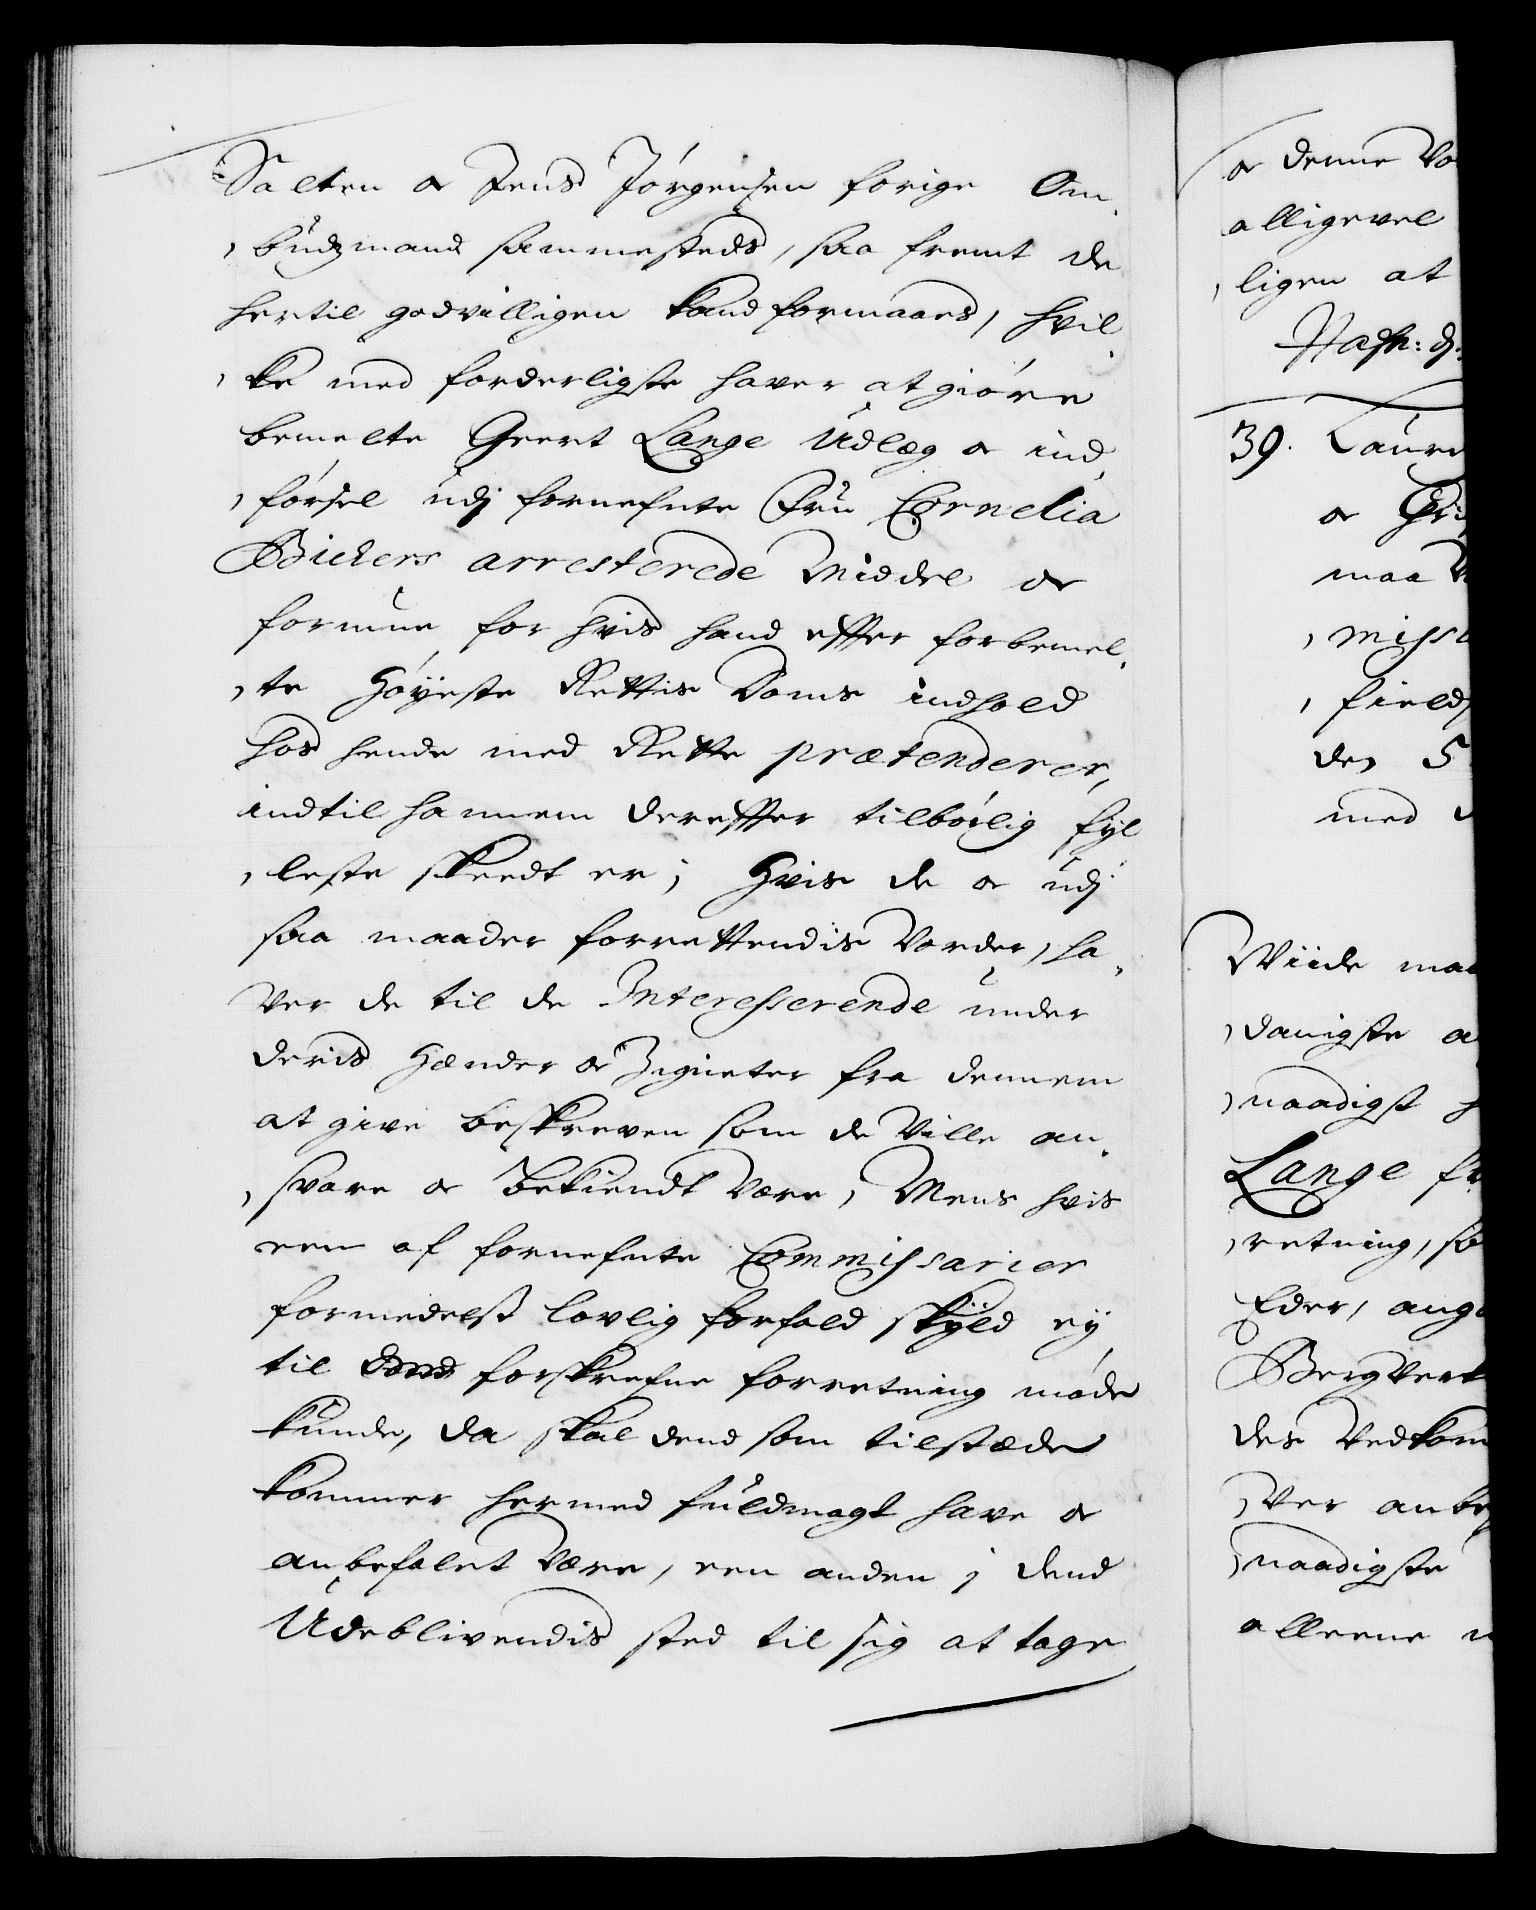 Salten og Jens Jørgensen forige Om-
budzmand sammesteds, saa fremt de
hertil godvilligen kand formaaes, hvil-
ke med forderligste haver at giøre
bemelte Geert Lange Udlæg og ind-
førsel udj fornefnte Fru Cornelia
Bickers arresterede Middel og
formue for hvis hand effter forbemel-
te Høyeste Rettis Doms indhold
hos hende med Rette prætenderer,
indtil hannem dereffter tilbørlig fyl-
leste skeedt er; Hvis de og udj
saa maader forrettendis Vorder, ha-
ver de til de Interesserende under
deris Hænder og Zigneter fra dennem
at give beskreven som de Ville an-
svare og Bekiendt være, Mens hvis
een af fornefnte Commissarier
formedelst lovlig forfald skyld ey
til forskrefne forretning møde
kunde, da skal dend som tilstæde
kommer hermed fuldmagt have og
anbefalet være, een anden i dend
Udeblivendis sted til sig at tage
og denne
alligevel
ligen at
39.
og
maa
den 5
med
Wiide
danigste
naadigst
Lange
retning,
Eder,
des
ver
naadigste
alleene